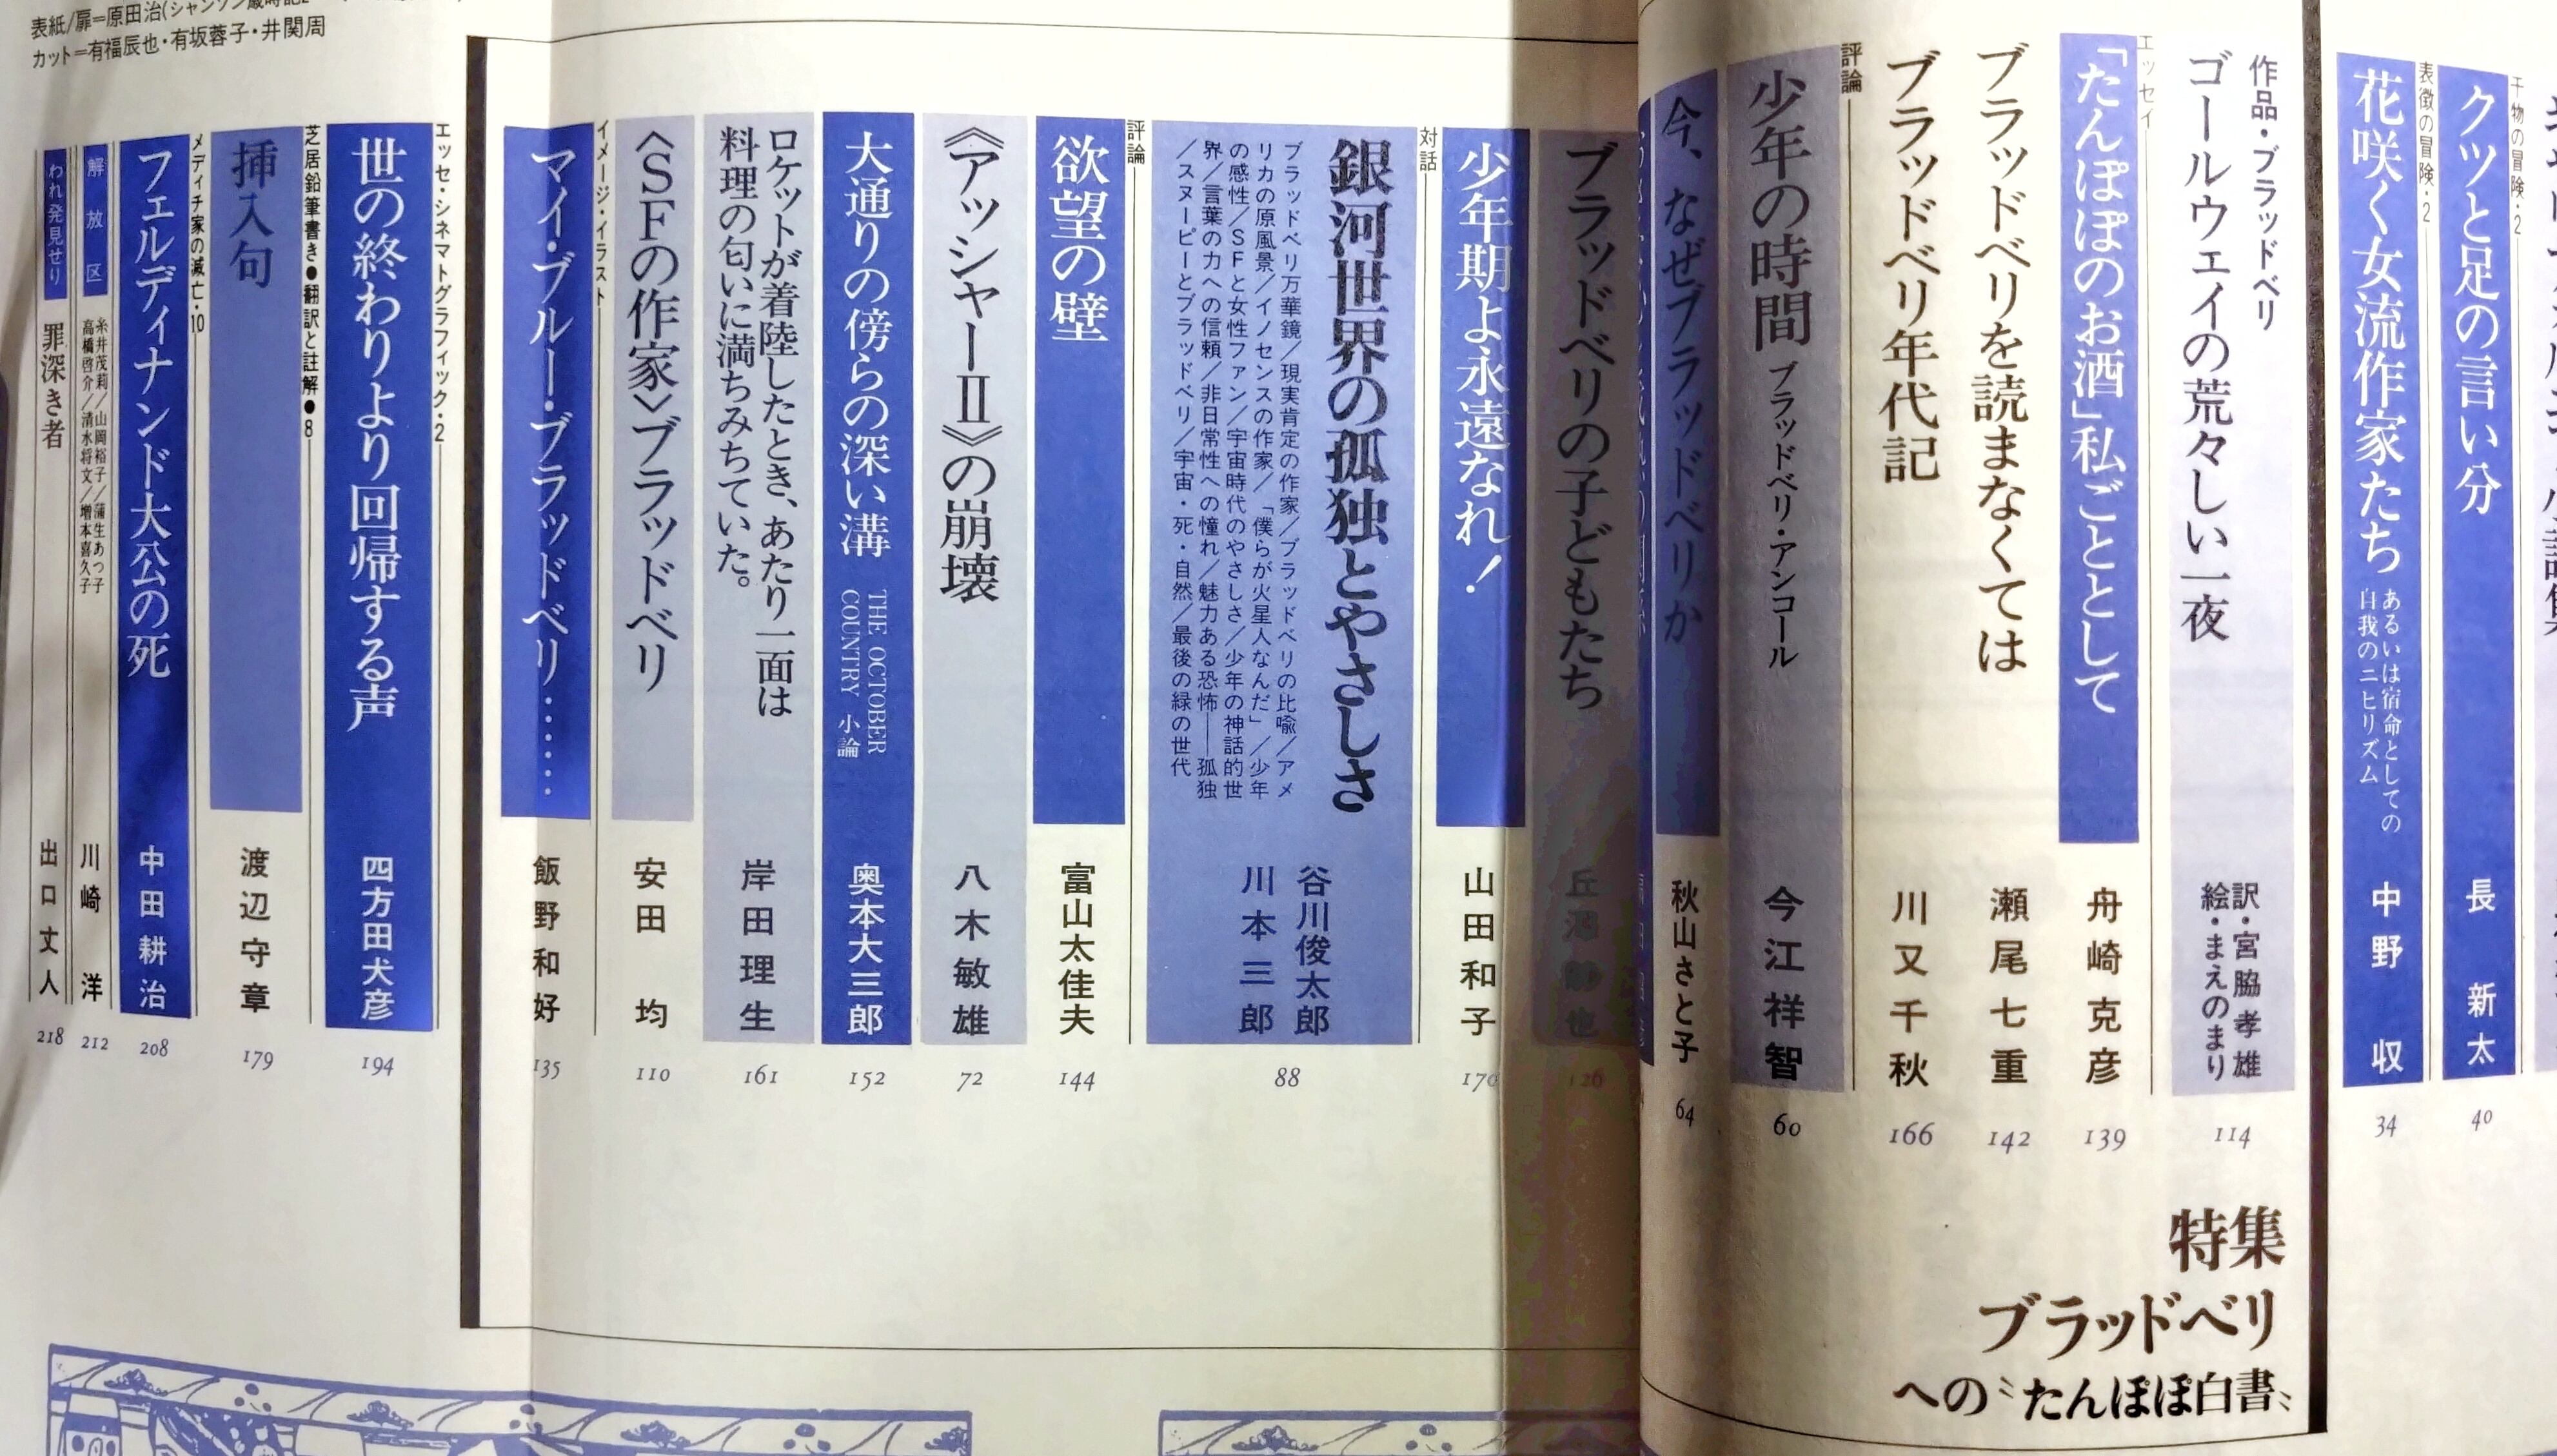 クツと足の言い分
長 新太
40
表徴の冒険・2
花咲く女流作家たち
あるいは宿命としての
自我のニヒリズム
中野 収
34
特集
ブラッドベリ
への〝たんぽぽ白書〟
作品・ブラッドベリ
ゴールウェイの荒々しい一夜
訳・宮脇孝雄
絵・まえのまり
114
エッセイ
「たんぽぽのお酒」私ごととして
舟崎克彦
139
ブラッドベリを読まなくては
瀬尾七重
142
ブラッドベリ年代記
川又千秋
166
評論
少年の時間
ブラッドベリ・アンコール
今江祥智
60
今、なぜブラッドベリか
秋山さと子
64
ブラッドベリの子どもたち
126
少年期よ永遠なれ!
山田和子
170
対話
銀河世界の孤独とやさしさ
ブラッドベリ万華鏡/現実肯定の作家/ブラッドベリの比喩/アメ
リカの原風景/イノセンスの作家/「僕らが火星人なんだ」/少年
の感性/SFと女性ファン/宇宙時代のやさしさ/少年の神話的世
界/言葉の力への信頼/非日常性への憧れ/魅力ある恐怖——孤独
/スヌーピーとブラッドベリ/宇宙・死・自然/最後の緑の世代
谷川俊太郎
川本三郎
88
評論
欲望の壁
富山太佳夫
144
《アッシャーⅡ》の崩壊
八木敏雄
72
大通りの傍らの深い溝
THE OCTOBER
COUNTRY 小論
奥本大三郎
152
ロケットが着陸したとき、あたり一面は
料理の匂いに満ちみちていた。
岸田理生
161
〈SFの作家〉ブラッドベリ
安田 均
110
イメージ・イラスト
マイ・ブルー・ブラッドベリ……
飯野和好
135
エッセ・シネマトグラフィック・2
世の終わりより回帰する声
四方田犬彦
194
芝居鉛筆書き●翻訳と註解●8
挿入句
渡辺守章
179
メディチ家の滅亡・10
フェルディナンド大公の死
中田耕治
208
解放区
糸井茂莉/山岡裕子/蒲生あつ子
高橋啓介/清水将文/増本喜久子
川崎 洋
212
われ発見せり
罪深き者
出口丈人
218
表紙/扉=原田治
カット=有福辰也・有坂蓉子・井関周